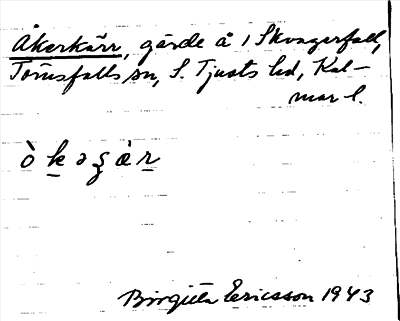 Åkerkärr, gärde å 1 Skvagerfall,
Törnsfalls sn, S. Tjusts hd, Kal-
mar l.
ò k ə ȥ à r
Birgitta Ericsson 1943